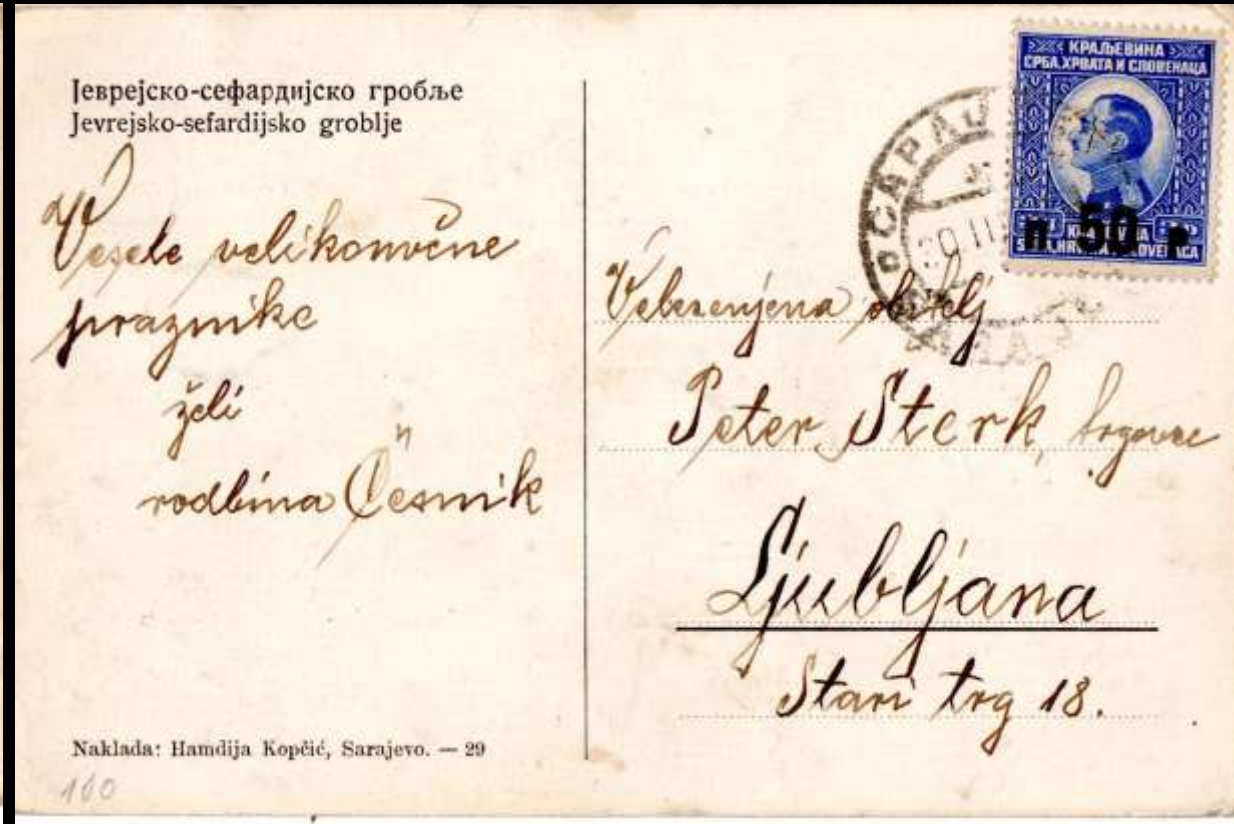 Јеврејско-сефардијско гробље
Jevrejsko-sefardijsko groblje
Vesele velikonočne
praznike
želi
rodbina Česnik
Naklada: Hamdija Kopčić, Sarajevo. — 29
100
КРАЉЕВИНА
СРБА, ХРВАТА И СЛОВЕНАЦА
п. 50 р
Peter Sterk, trgovec
Ljubljana
Stari trg 18.